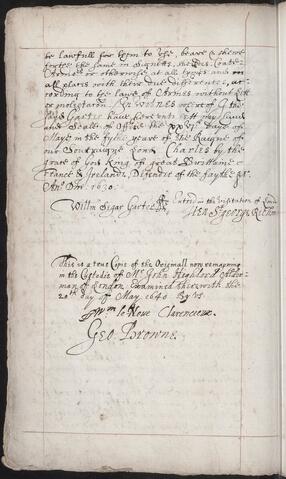 be lawfull for him to use, beare & shewe
forthe the same in Signett, Shield, Coate
Armes or otherwise at all tymes and in
all places with there due differences, ac-
cording to the lawe of Armes without lett
or molestacon. In witnes wereof I the
said Garter have hereunto sett my hand
and Seale of Office the xxvi daye of
Maye in the fyfte yeere of the Raigne of
our Souveraigne Lord Charles by the
grace of God King of great Brittaine
France & Ireland, Defendor of the faythe &c.
An. Dni. 1630.
Willm Sigar Garter
Entred in the Visitation of London
Hen St george Richm
This is a true Copie of the Originall now remayning
in the Custodie of Mr. John Highlord Alder-
man of London. Examined therewith the
20th day of May. 1640. By Us
Wm le Neve Clarenceux.
Geo. Browne.